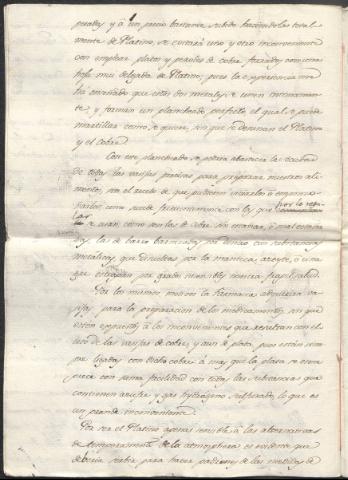 pesados y á un precio bastante subido haciendolas total-
mente de Platino, se evitará uno y otro inconveniente
con emplear platos y peroles de cobre, forrados con una
hoja muy delgada de Platino, pues la experiencia me
ha enseñado que estos dos metales se unen intimamen-
te, y forman un planchado perfecto el qual se puede
martillar como se quiera, sin que se desunan el Platino
y el cobre.
Con este planchado se podria abastecer la
de todas las vasijas precisas para preparar nuestro ali-
mento, sin el recelo de que pudieran viciarlos ó empon-
zoñarlos como sucede frecuentemente con los que por lo regu-
lar se usan como son los de cobre sin estañar, ó mal estaña-
das, las de barro barnizadas por dentro con substancias
metalicas, que disueltas por la manteca, aceyte, ó vina-
gre estragan por grados nuestra fragil salud.
Por los mismos motivos la Farmacia adquiriria va-
sijas para la preparacion de los medicamentos, sin que
esten expuestos á los inconvenientes que resultan con el
uso de las vasijas de cobre, y aun de plata, pues están siem-
pre ligadas con dicho cobre á mas que la plata se enne-
grece con suma facilidad con todas las substancias que
contienen azufre y gas hydrogeno sulfurado, lo que es
un grande inconveniente.
Por ser el Platino apenas sensible á las alternativas
de temperamento de la atmosphera es evidente que
deberia servir para hacer padrones de las medidas de